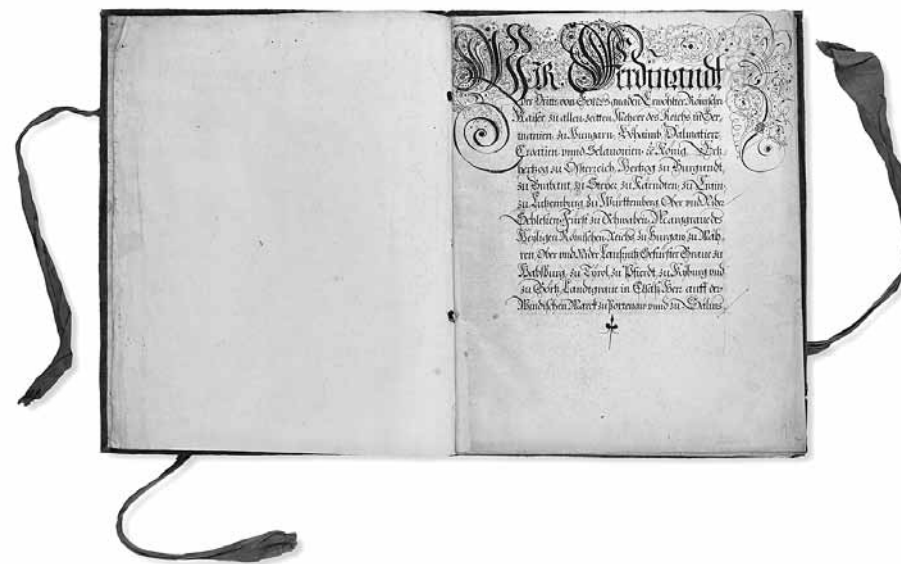 Wir Ferdinandt
Der Dritte von Gottes gnaden Erwöhlter Römischer
Kaiser zu allen zeitten Mehrer des Reichs in Ger-
manien, zu Hungarn, Böhaimb, Dalmatien,
Croatien vnnd Sclauonien, &c. König, Ertz-
hertzog zu Össterreich, Hertzog zu Burgundt,
zu Brabant, zu Steyer, zu Kärndten, zu Crain,
zu Lutzemburg, zu Württemberg, Ober vnd Nider
Schlesien, Fürst zu Schwaben, Marggraue des
Heyligen Römischen Reichs, zu Burgaw, zu Mäh-
ren, Ober vnd Nider Laussnitz, Gefürster Graue zu
Habspurg, zu Tyrol, zu Pfierdt, zu Kyburg vnd
zu Görtz, Landtgraue in Elsass, Herr auff der
Windischen Marck zu Portenaw vnnd zu Salins